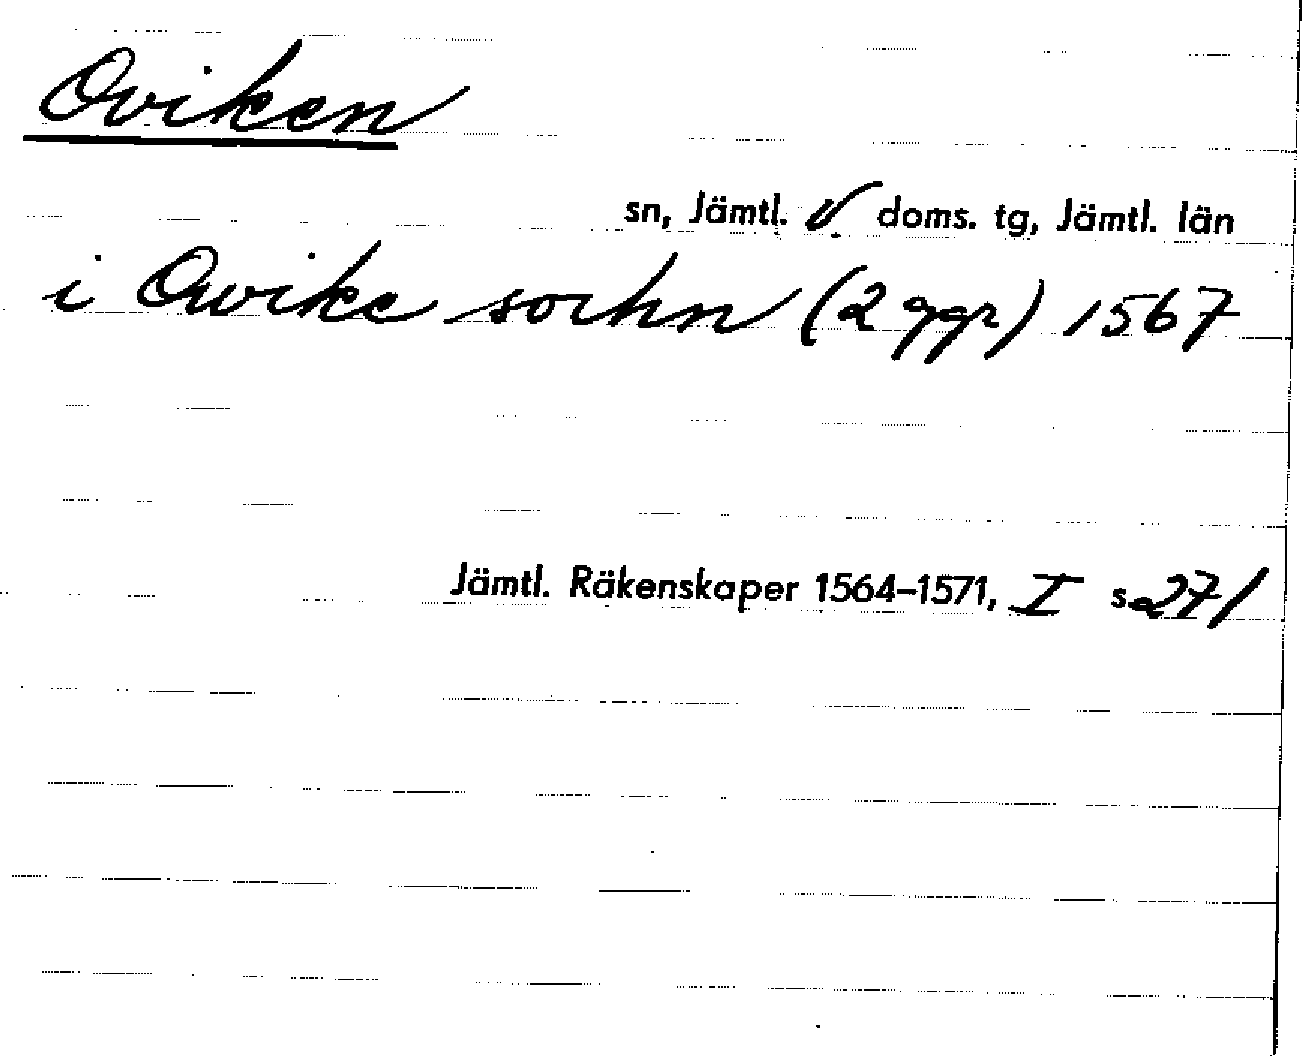 Oviken
sn, Jämtl. v. doms. tg, Jämtl. län
i Owike sochn (2 ggr) 1567
Jämtl. Räkenskaper 1564–1571, I s. 271